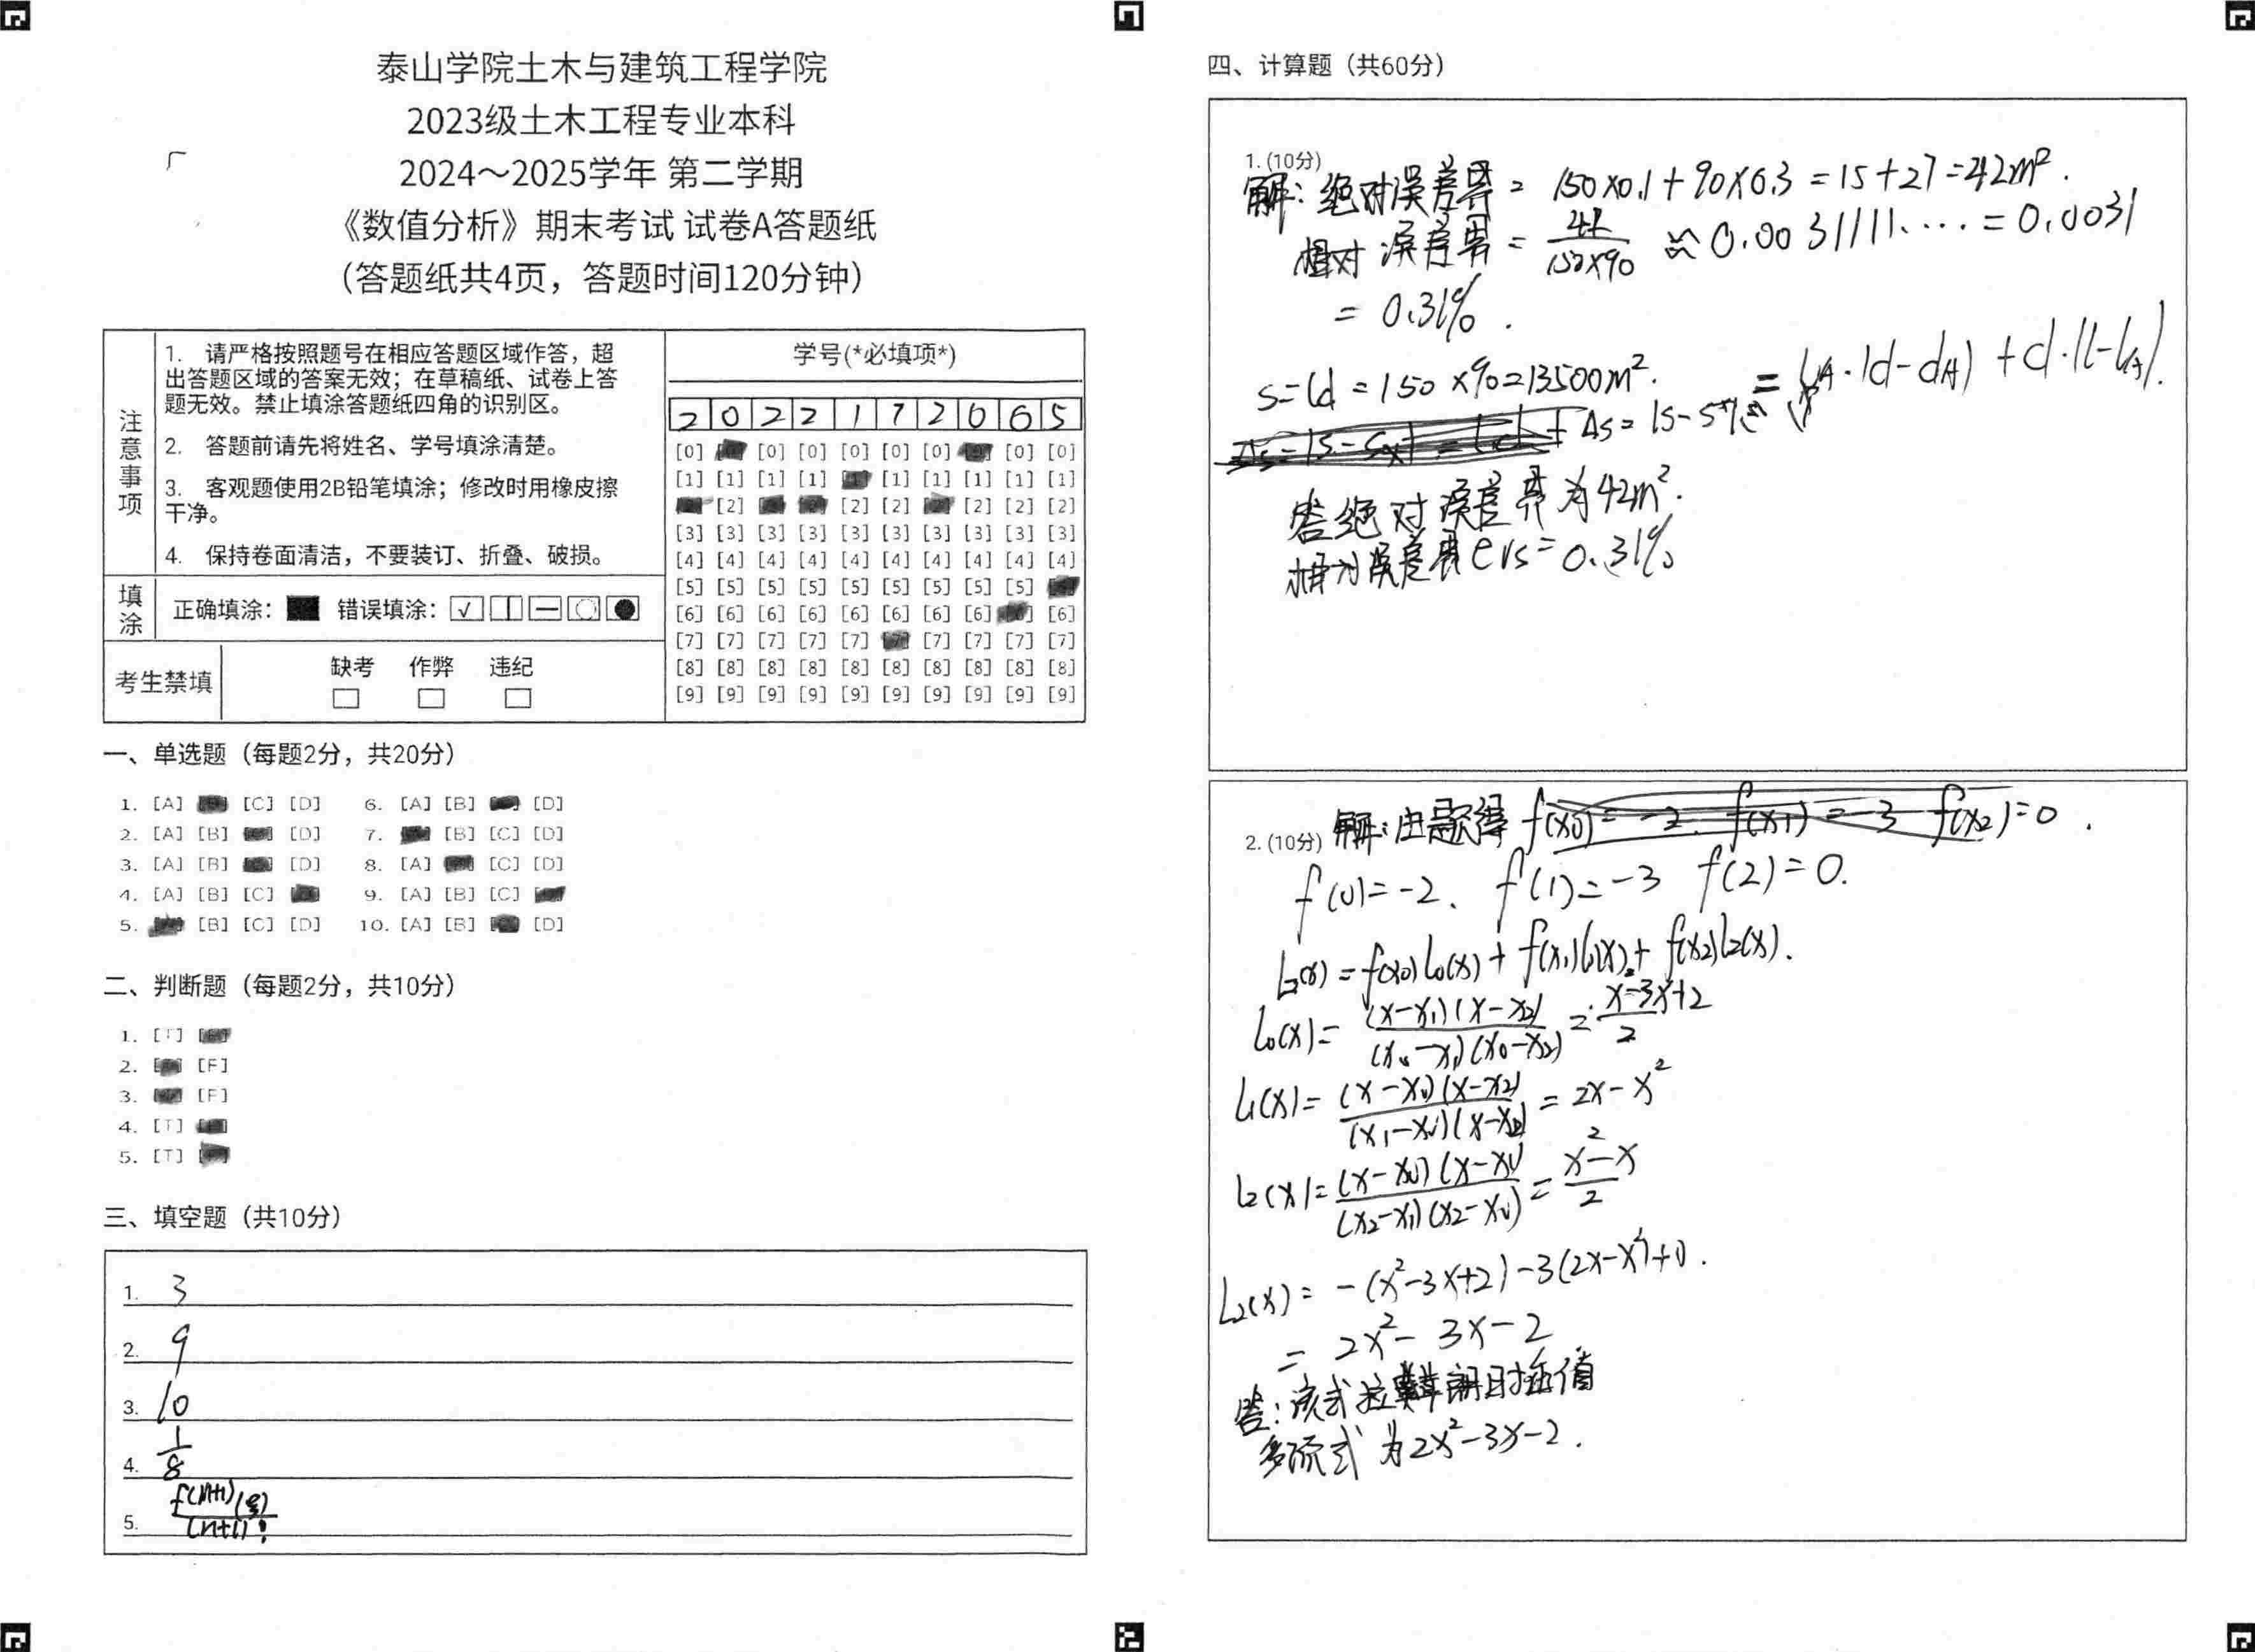 泰山学院土木与建筑工程学院
2023级土木工程专业本科
2024～2025学年 第二学期
《数值分析》期末考试 试卷A答题纸
（答题纸共4页，答题时间120分钟）
注意事项
1. 请严格按照题号在相应答题区域作答，超
出答题区域的答案无效；在草稿纸、试卷上答
题无效。禁止填涂答题纸四角的识别区。
2. 答题前请先将姓名、学号填涂清楚。
3. 客观题使用2B铅笔填涂；修改时用橡皮擦
干净。
4. 保持卷面清洁，不要装订、折叠、破损。
填涂 正确填涂： 错误填涂：
考生禁填 缺考 作弊 违纪
学号(*必填项*)
2 0 2 2 1 7 2 0 6 5
[0] [0] [0] [0] [0] [0] [0] [0]
[1] [1] [1] [1] [1] [1] [1] [1] [1]
[2] [2] [2] [2] [2] [2]
[3] [3] [3] [3] [3] [3] [3] [3] [3] [3]
[4] [4] [4] [4] [4] [4] [4] [4] [4] [4]
[5] [5] [5] [5] [5] [5] [5] [5] [5]
[6] [6] [6] [6] [6] [6] [6] [6] [6]
[7] [7] [7] [7] [7] [7] [7] [7] [7]
[8] [8] [8] [8] [8] [8] [8] [8] [8] [8]
[9] [9] [9] [9] [9] [9] [9] [9] [9] [9]
一、单选题（每题2分，共20分）
1. [A] [C] [D] 6. [A] [B] [D]
2. [A] [B] [D] 7. [B] [C] [D]
3. [A] [B] [D] 8. [A] [C] [D]
4. [A] [B] [C] 9. [A] [B] [C]
5. [B] [C] [D] 10. [A] [B] [D]
二、判断题（每题2分，共10分）
1. [T]
2. [F]
3. [F]
4. [T]
5. [T]
三、填空题（共10分）
1. 3
2. 9
3. 10
4. 1/8
5. f(n+1)(ξ)/(n+1)!
四、计算题（共60分）
1. (10分)
解：绝对误差界 = 150×0.1+90×0.3=15+27=42m².
相对误差界 = 42/150×90 ≈ 0.0031111.… = 0.0031
= 0.31% .
S=ld =150×90=13500m².
Δs= |S-S*| = lA·|d-dA| + d·|l-lA|.
答绝对误差界为42m².
相对误差界ers=0.31%
2. (10分) 解：由题得 f(x0)=-2. f(x1)=-3 f(x2)=0 .
f(0)=-2. f(1)=-3 f(2)=0.
L2(x)=f(x0)l0(x)+f(x1)l1(x)+f(x2)l2(x).
l0(x)= (x-x1)(x-x2)/(x0-x1)(x0-x2) = x²-3x+2/2
l1(x)= (x-x0)(x-x2)/(x1-x0)(x-x2) = 2x-x²
l2(x)= (x-x0)(x-x1)/(x2-x1)(x2-x0) = x²-x/2
L2(x)= -(x²-3x+2)-3(2x-x²)+0 .
= 2x²-3x-2
答：该式拉格朗日插值
多项式为2x²-3x-2 .